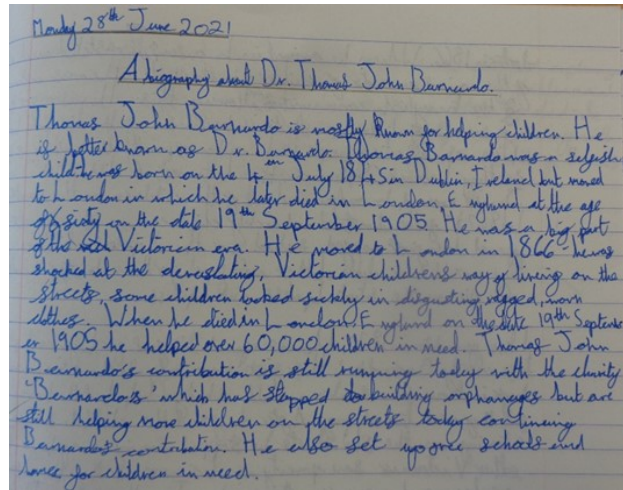 Monday 28th June 2021
A biography about Dr. Thomas John Barnardo.
Thomas John Barnardo is mostly known for helping children. He
is better known as Dr. Barnardo. Thomas Barnardo was a selfish
child. he was born on the 4th July 1845 in Dublin, Ireland but moved
to London in which he later died in London, England at the age
of sixty on the date 19th September 1905. He was a big part
of the Victorian era. He moved to London in 1866 he was
shocked at the devastating, Victorian childrens way of living on the
streets, some children looked sickly in disgusting ragged, worn
clothes. When he died in London, England on the date 19th Septemb
er 1905 he helped over 60,000 children in need. Thomas John
Barnardo's contribution is still running today with the charity
'Barnardo's' which has stopped building orphanages but are
still helping more children on the streets today continuing
Barnardo's contribution. He also set up free schools and
homes for children in need.